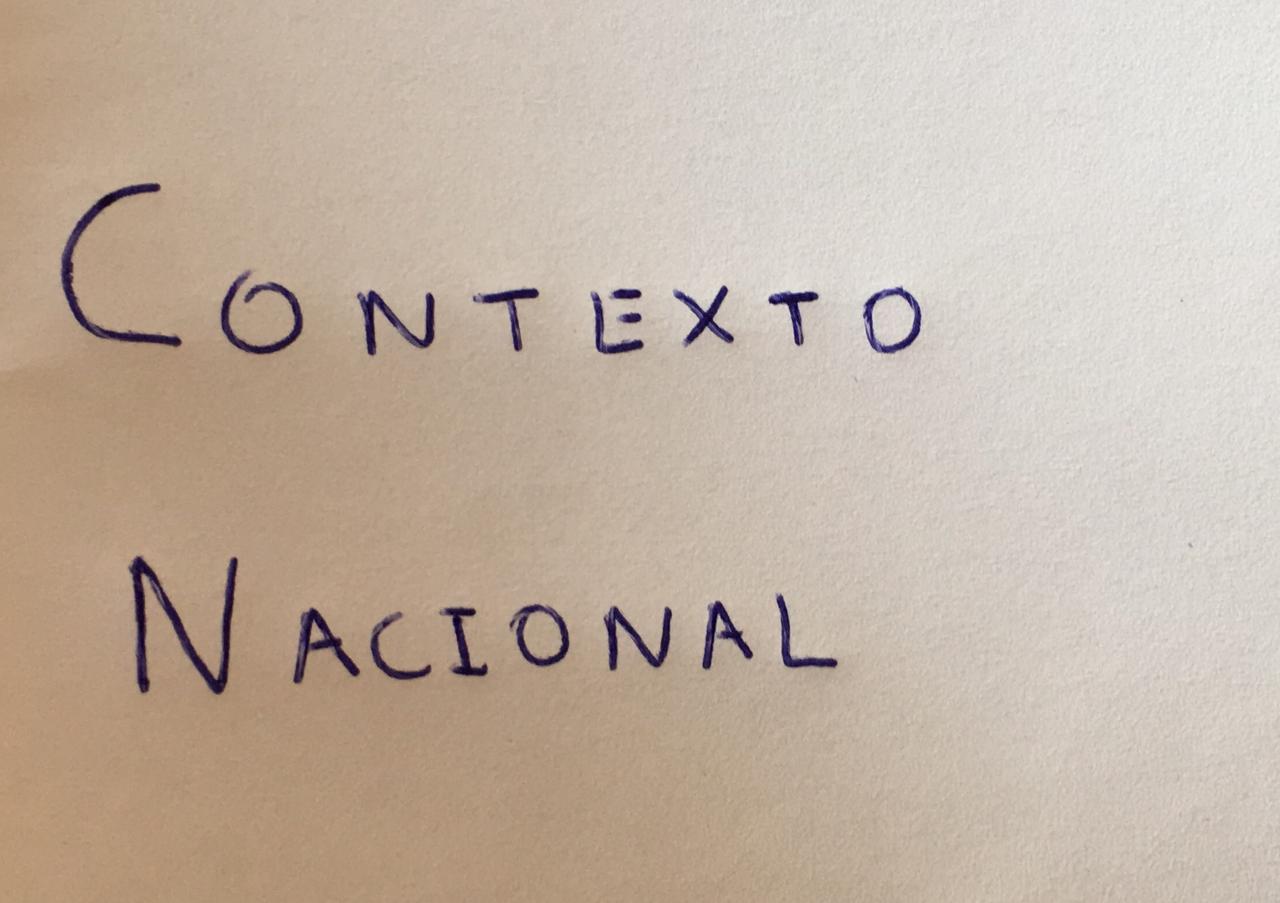 CONTEXTO
NACIONAL